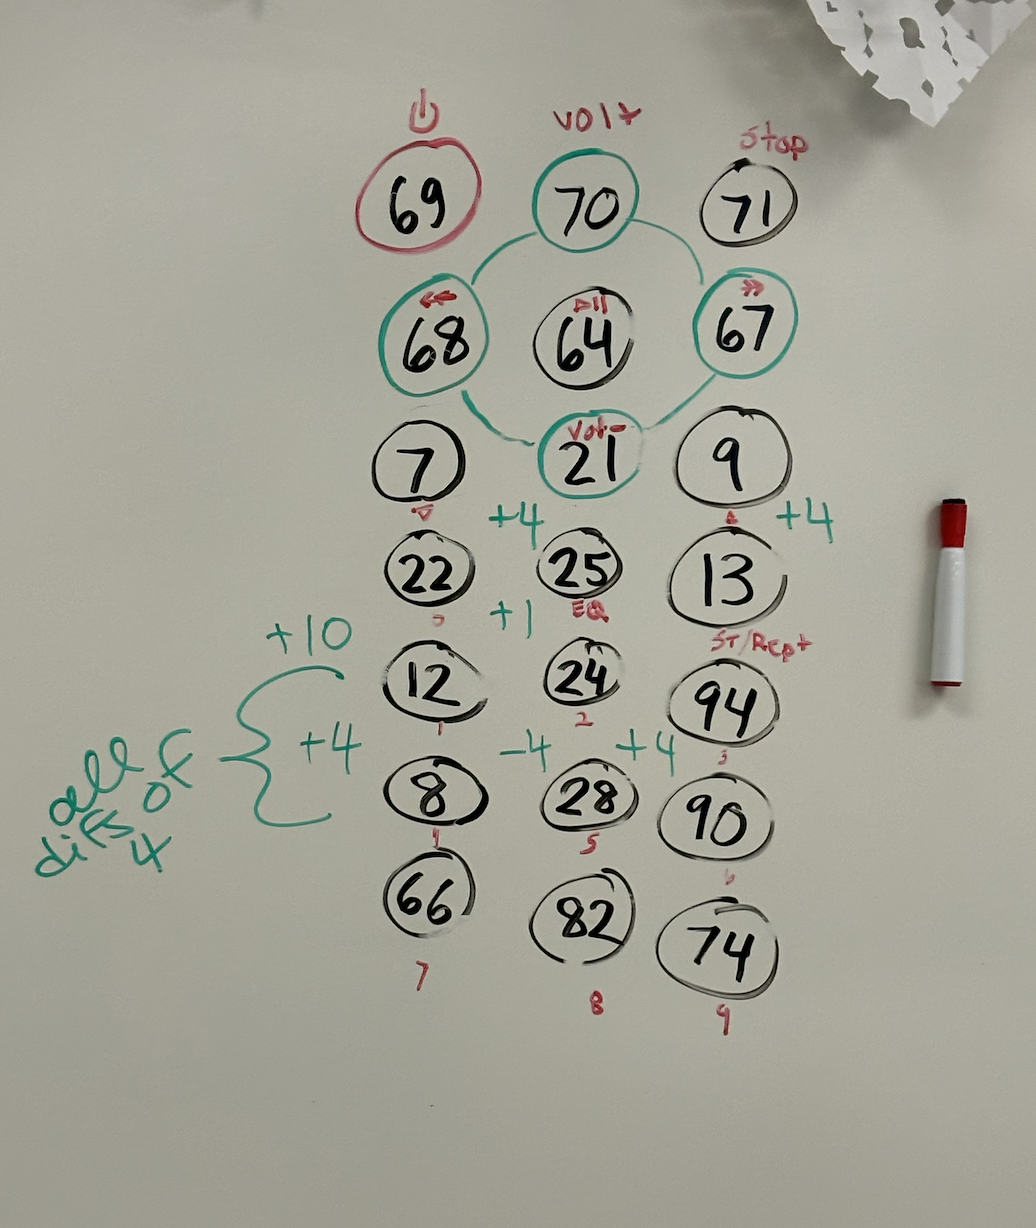 vol+
stop
69 70 71
68 64 67
vol-
7 21 9
+4 +4
22 25 13
0 +1 EQ ST/Rept
+10
12 24 94
1 2 3
+4 -4 +4
all
diffs of
4
8 28 90
4 5 6
66 82 74
7 8 9